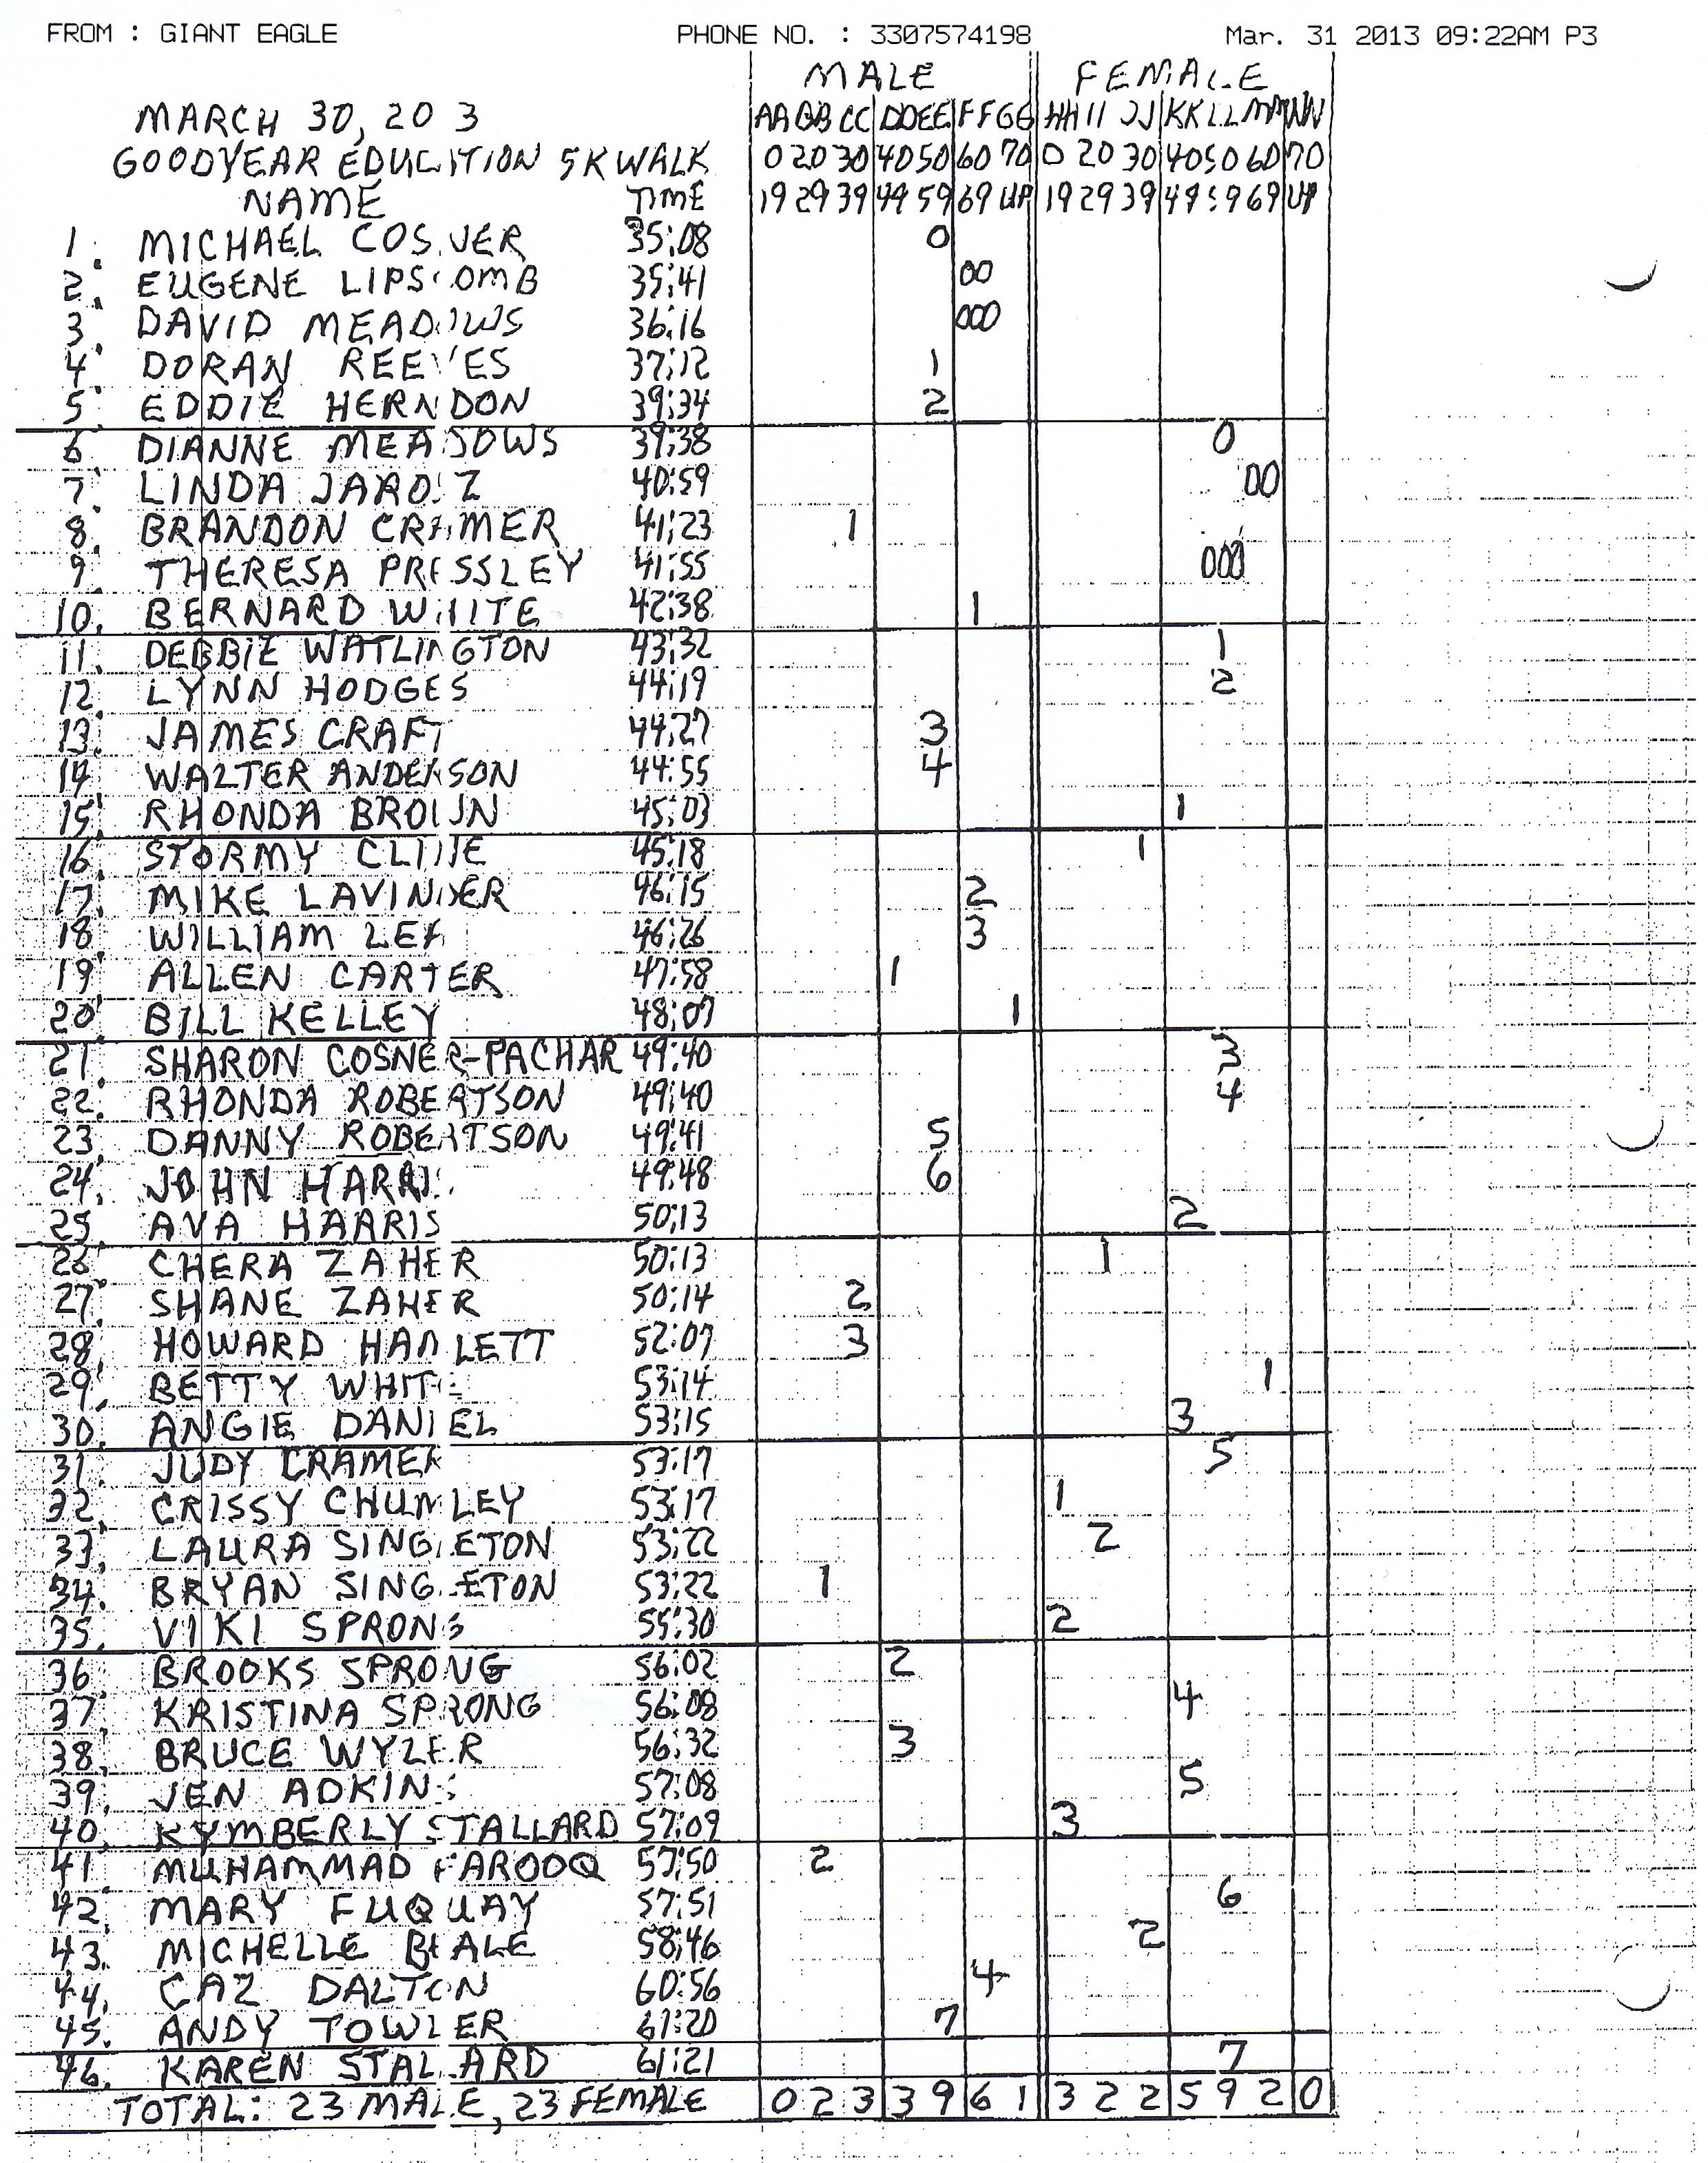 FROM : GIANT EAGLE PHONE NO. : 3307574198 Mar. 31 2013 09:22AM P3
MALE FEMALE
MARCH 30, 20 3 AA BB CC DD EE FF GG HH II JJ KK LL MM NN
GOODYEAR EDUCATION 5K WALK 0 20 30 40 50 60 70 0 20 30 40 50 60 70
NAME TIME 19 29 39 49 59 69 UP 19 29 39 49 59 69 UP
1. MICHAEL COSNER 35:08 0
2. EUGENE LIPSCOMB 35:41 00
3. DAVID MEADOWS 36:16 000
4. DORAN REEVES 37:12 1
5. EDDIE HERNDON 39:34 2
6. DIANNE MEADOWS 39:38 0
7. LINDA JAROSZ 40:59 00
8. BRANDON CRAMER 41:23 1
9. THERESA PRESSLEY 41:55 000
10. BERNARD WHITE 42:38 1
11. DEBBIE WATLINGTON 43:32 1
12. LYNN HODGES 44:19 2
13. JAMES CRAFT 44:27 3
14. WALTER ANDERSON 44:55 4
15. RHONDA BROWN 45:03 1
16. STORMY CLINE 45:18 1
17. MIKE LAVINDER 46:15 2
18. WILLIAM LEA 46:26 3
19. ALLEN CARTER 47:58 1
20. BILL KELLEY 48:07 1
21. SHARON COSNER-PACHAR 49:40 3
22. RHONDA ROBERTSON 49:40 4
23. DANNY ROBERTSON 49:41 5
24. JOHN HARRIS 49:48 6
25. AVA HARRIS 50:13 2
26. CHERA ZAHER 50:13 1
27. SHANE ZAHER 50:14 2
28. HOWARD HAMLETT 52:07 3
29. BETTY WHITE 53:14 1
30. ANGIE DANIEL 53:15 3
31. JUDY CRAMER 53:17 5
32. CRISSY CHUMLEY 53:17 1
33. LAURA SINGLETON 53:22 2
34. BRYAN SINGLETON 53:22 1
35. VIKI SPRONG 55:30 2
36. BROOKS SPRONG 56:02 2
37. KRISTINA SPRONG 56:08 4
38. BRUCE WYLER 56:32 3
39. JEN ADKINS 57:08 5
40. KYMBERLY STALLARD 57:09 3
41. MUHAMMAD FAROOQ 57:50 2
42. MARY FUQUAY 57:51 6
43. MICHELLE BEALE 58:46 2
44. CAZ DALTON 60:56 4
45. ANDY TOWLER 61:20 7
46. KAREN STALLARD 61:21 7
TOTAL: 23 MALE, 23 FEMALE 0 2 3 3 9 6 1 3 2 2 5 9 2 0